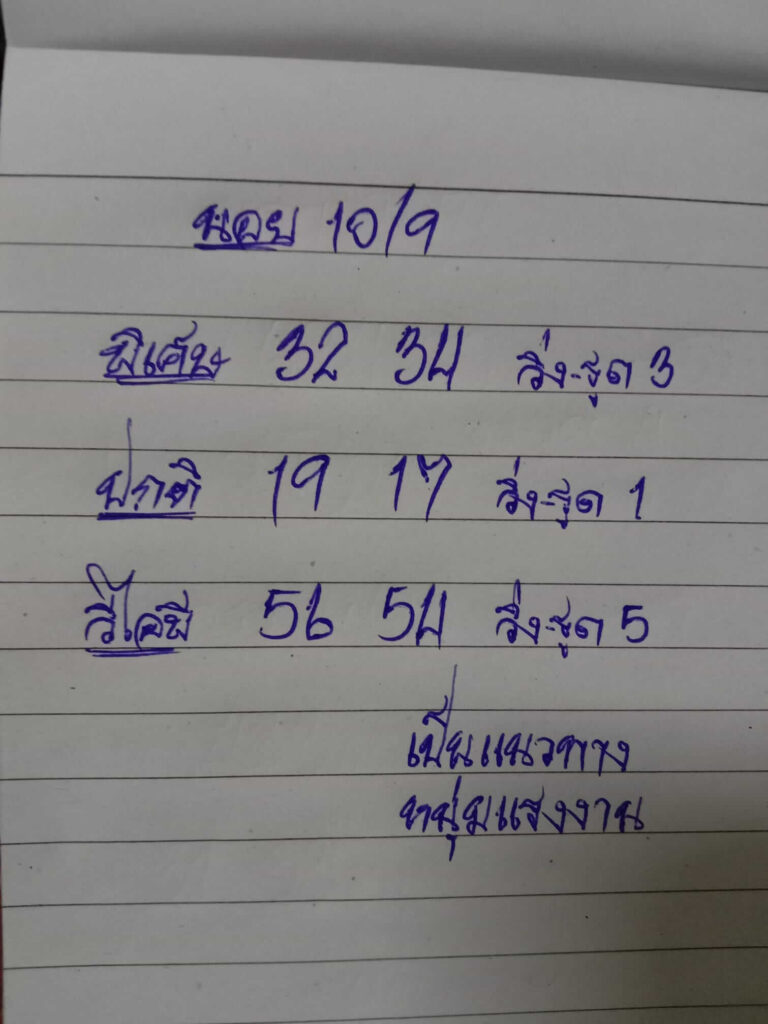 นอย 10/9
พิเศษ 32 34 วิ่ง-รูด 3
ปกติ 19 17 วิ่ง-รูด 1
วีไอพี 56 54 วิ่ง-รูด 5
เป็นแนวทาง
หนุ่มแรงงาน